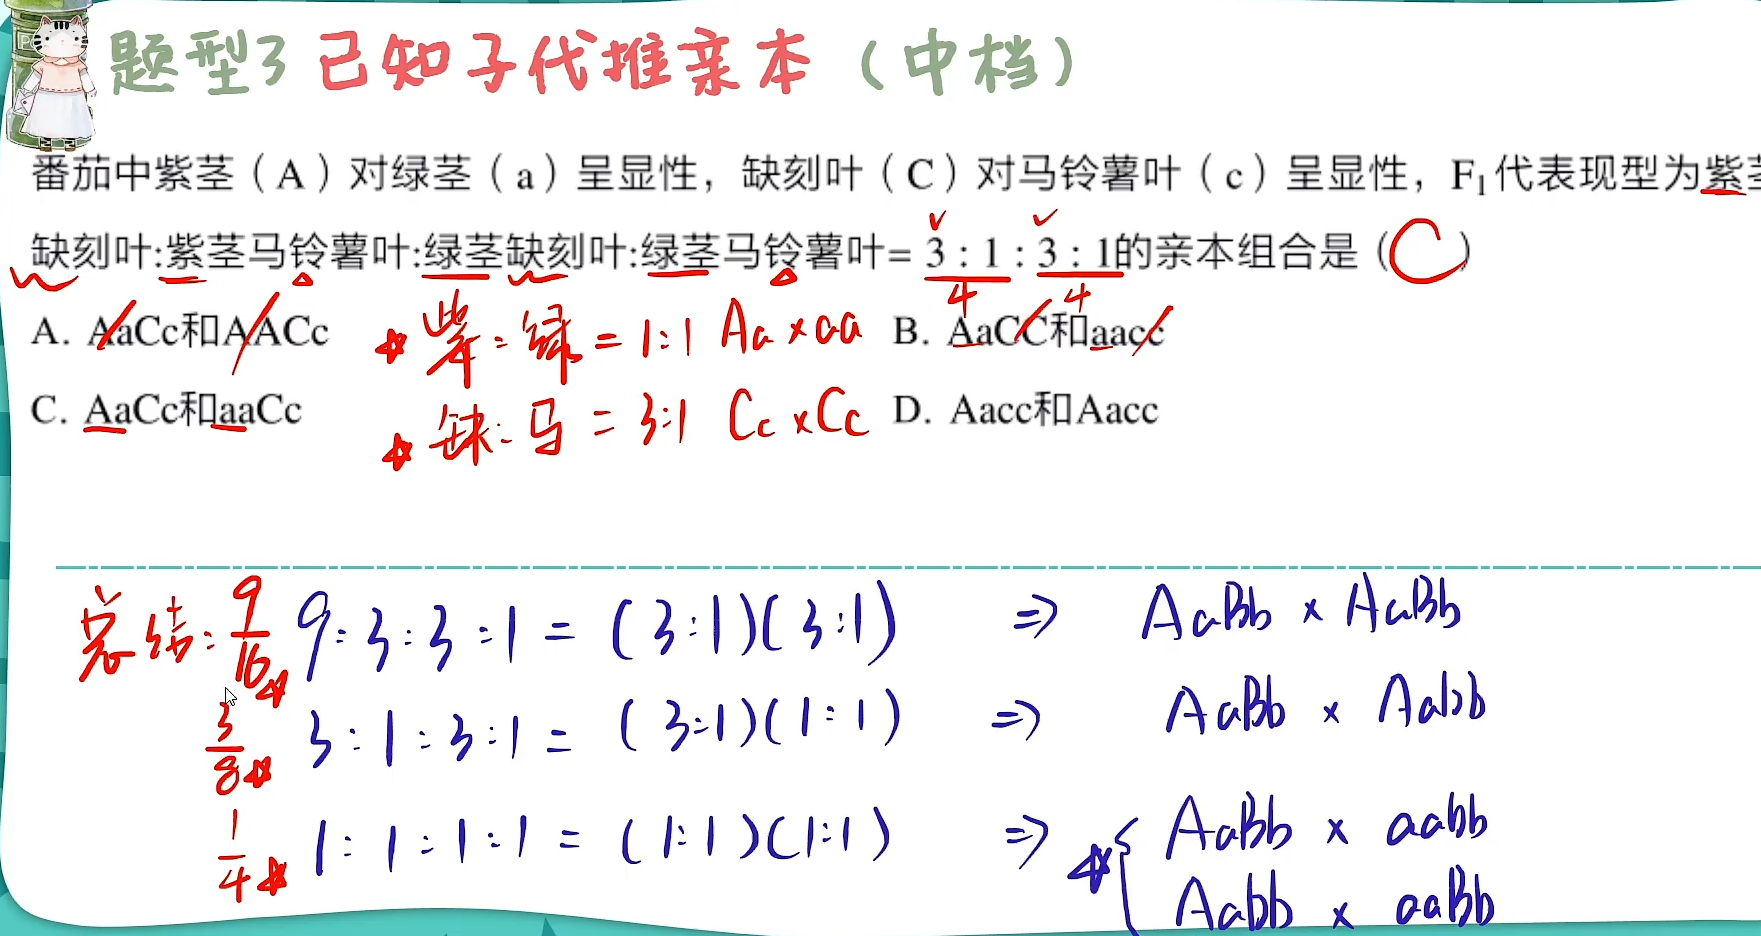 题型3 已知子代推亲本（中档）
番茄中紫茎（A）对绿茎（a）呈显性，缺刻叶（C）对马铃薯叶（c）呈显性，F₁代表现型为紫茎
缺刻叶:紫茎马铃薯叶:绿茎缺刻叶:绿茎马铃薯叶= 3 : 1 : 3 : 1的亲本组合是（C）
4 4
A. AaCc和AACc
紫:绿=1:1 Aa×aa
B. AaCC和aacc
C. AaCc和aaCc
缺:马=3:1 Cc×Cc
D. Aacc和Aacc
总结: 9/16 9:3:3:1=(3:1)(3:1) ⇒ AaBb × AaBb
3/8 3:1:3:1=(3:1)(1:1) ⇒ AaBb × Aabb
1/4 1:1:1:1=(1:1)(1:1) ⇒ AaBb × aabb
Aabb × aaBb